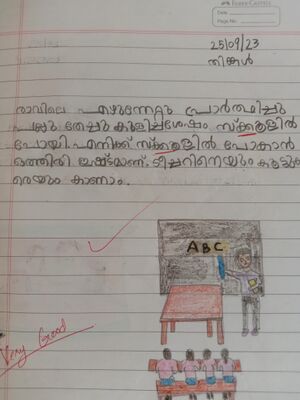 Date:
Page No.:
25/09/23
തിങ്കൾ
രാവിലെ എഴുന്നേറ്റു പ്രാർത്ഥിച്ചു
പല്ലു തേച്ചു കുളിച്ചശേഷം സ്ക്കൂളിൽ
പോയി. എനിക്ക് സ്ക്കൂളിൽ പോകാൻ
ഒത്തിരി ഇഷ്ടമാണ്. ടീച്ചറിനെയും കൂട്ടുകാ
രെയും കാണാം.
ABC
Very Good